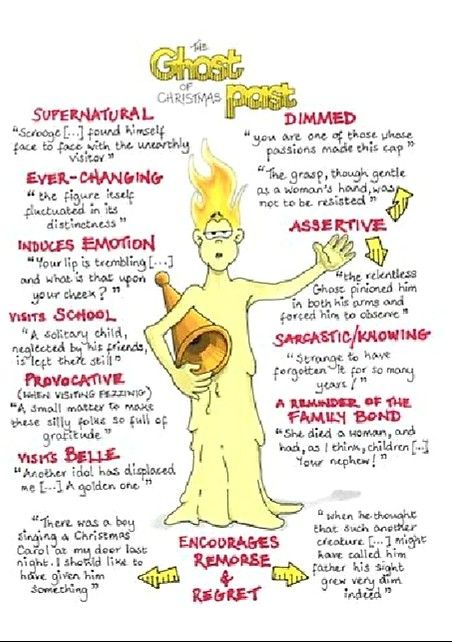 THE
Ghost
OF
CHRISTMAS
past
SUPERNATURAL
"Scrooge [...] found himself
face to face with the unearthly
visitor"
EVER-CHANGING
"the figure itself
fluctuated in its
distinctness"
INDUCES EMOTION
"Your lip is trembling [...]
and what is that upon
your cheek?"
VISITS SCHOOL
"A solitary child,
neglected by his friends,
is left there still"
PROVOCATIVE
(WHEN VISITING FEZZIWIG)
"A small matter to make
these silly folks so full of
gratitude"
VISITS BELLE
"Another idol has displaced
me [...] A golden one"
"There was a boy
singing a Christmas
Carol at my door last
night. I should like to
have given him
something"
DIMMED
"you are one of those whose
passions made this cap"
"The grasp, though gentle
as a woman's hand, was
not to be resisted"
ASSERTIVE
"the relentless
Ghost pinioned him
in both his arms and
forced him to observe"
SARCASTIC/KNOWING
"Strange to have
forgotten it for so many
years!"
A REMINDER OF THE
FAMILY BOND
"She died a woman, and
had, as I think, children [...]
Your nephew!"
ENCOURAGES
REMORSE
&
REGRET
"when he thought
that such another
creature [...] might
have called him
father his sight
grew very dim
indeed"